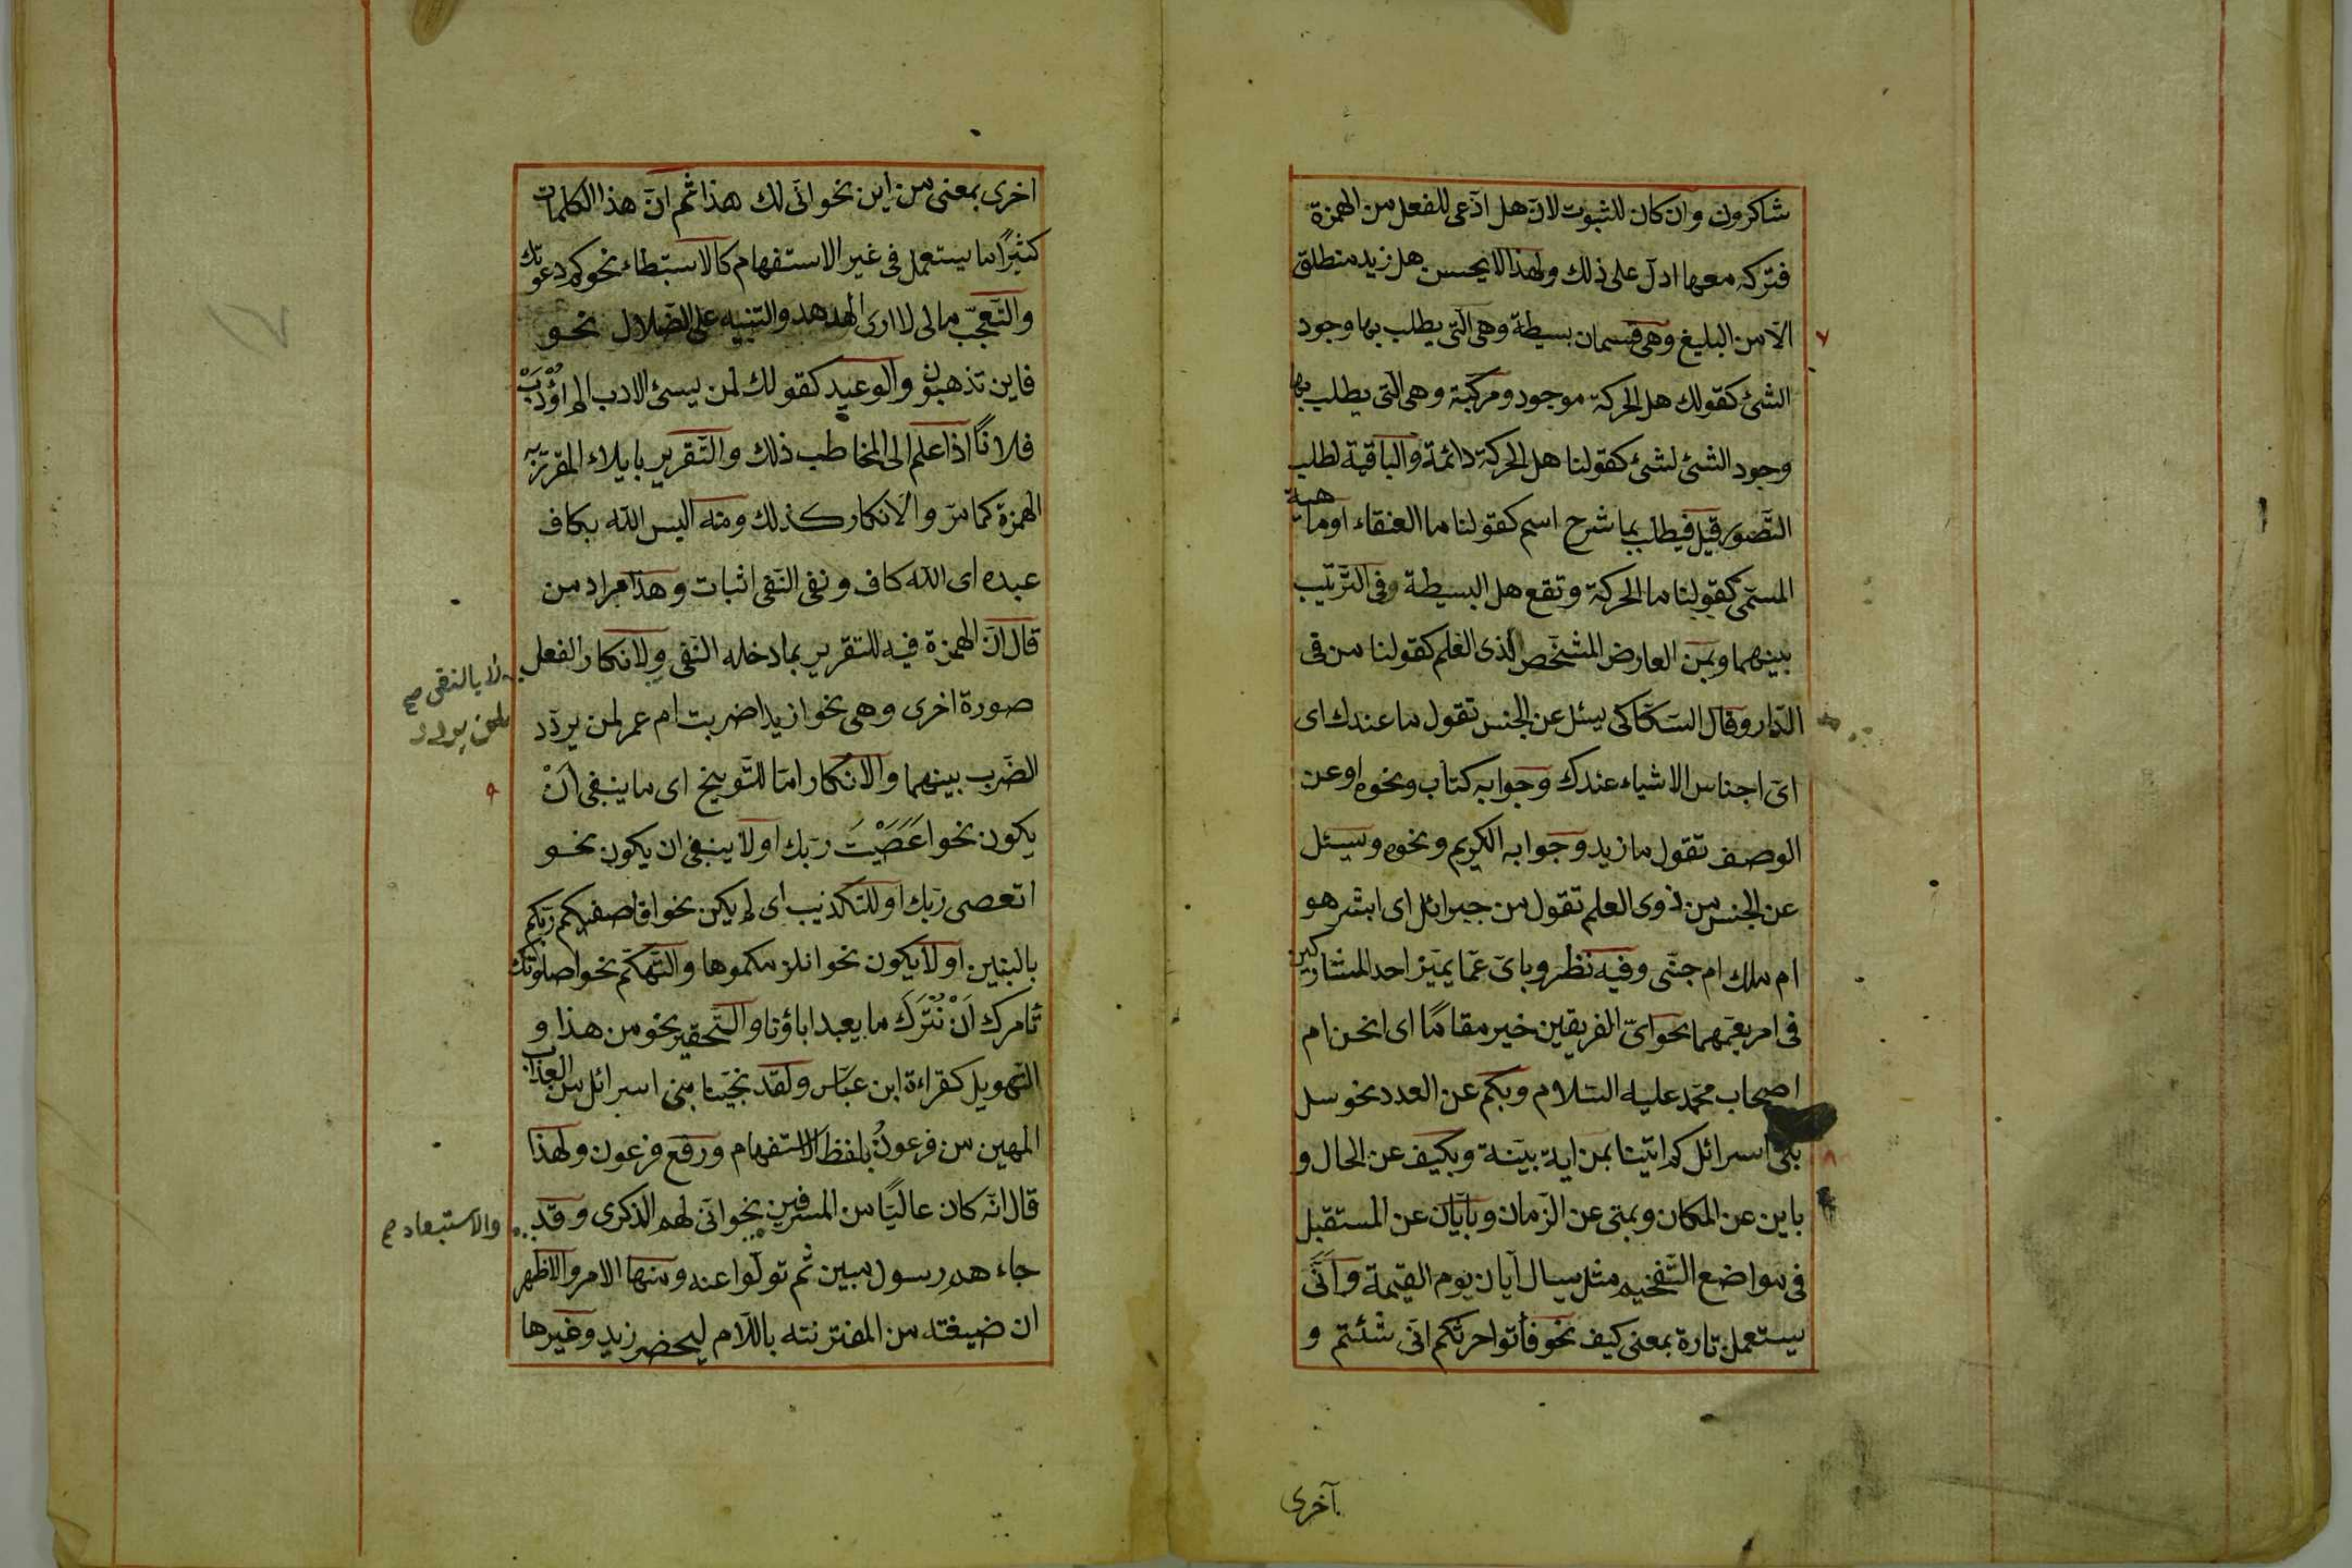 شاكرون وان كان للثبوت لانّ هل ادعى للفعل من الهمزة
فتركه معها ادلّ على ذلك ولهذا لا يحسن هل زيد منطلق
الّا من البليغ وهى قسمان بسيطة وهى الّتى يطلب بها وجود
الشئ كقولك هل الحركة موجود ومركّبة وهى الّتى يطلب بها
وجود الشئ لشئ كقولنا هل الحركة دائمة والباقية لطلب
التّصور قيل فيطلب بما شرح اسم كقولنا ما العنقاء او ماهية
المسمّى كقولنا ما الحركة وتقع هل البسيطة فى التّرتيب
بينهما وبمن العارض المشخّص لذى العلم كقولنا من فى
الدّار وقال السّكّاكى يسئل عن الجنس تقول ما عندك اى
اىّ اجناس الاشياء عندك وجوابه كتاب ونحوه او عن
الوصف تقول ما زيد وجوابه الكريم ونحوه ويسئل
عن الجنس من ذوى العلم تقول من جبرائل اى ابشر هو
ام ملك ام جنّى وفيه نظر وباىّ عمّا يميّز احد المتشاركين
فى امر يعمّهما نحو اىّ الفريقين خير مقامًا اى انحن ام
اصحاب محمّد عليه السّلام وبكم عن العدد نحو سل
بنى اسرائل كم اتينا بمن اية بيّنة وبكيف عن الحال و
باين عن المكان وبمتى عن الزّمان وبايّان عن المستقبل
فى مواضع التّفخيم مثل يسال ايّان يوم القيمة وانّى
يستعمل تارة بمعنى كيف نحو فأتوا حرثكم انّى شئتم و
آخرى
اخرى بمعنى من اين نحو انّى لك هذا ثم انّ هذا الكلمات
كثيرًا ما يستعمل فى غير الاستفهام كالاستبطاء نحو كم دعوتك
والتّعجّب مالى لا ارى الهدهد والتنبيه على الضّلال نحو
فاين تذهبون والوعيد كقولك لمن يسئ الادب الم اؤدّب
فلانًا اذا علم الى المخاطب ذلك والتّقرير بايلاء المقرّر به
الهمزة كما مرّ والانكار كذلك ومنه اليس اللّه بكاف
عبده اى اللّه كاف ونفى النّفى اثبات وهذا مراد من
قال انّ الهمزة فيه للتقرير بما دخله النّفى ولانكار الفعل
لا بالنفى صح
صورة اخرى وهى نحو ازيدا ضربت ام عمر لمن يردّد
الضّرب بينهما والانكار امّا للتّوبيخ اى ما ينبغى انْ
يكون نحو اعَصَيْتَ ربّك او لا ينبغى ان يكون نحو
اتعصى ربّك او للتكذيب اى لم يكن نحو افاصفيكم ربّكم
بالبنين او لا يكون نحو انلزمكموها والتّهكّم نحو اصلوتك
تامرك اَنْ نُتْرَكَ ما يعبد اباؤنا والتّحقير نحو من هذا و
التّهويل كقراءة ابن عبّاس ولقد نجّينا بنى اسرائل من العذاب
المهين من فرعونُ بلفظ الاستفهام ورفع فرعون ولهذا
قال انّه كان عاليًا من المسرفين نحو انّى لهم الذكرى وقد
والاستبعاد صح
جاءهم رسول مبين ثم تولّوا عنه ومنها الامر والاظهر
ان ضيغته من المقترنته باللّام ليحضر زيد وغيرها